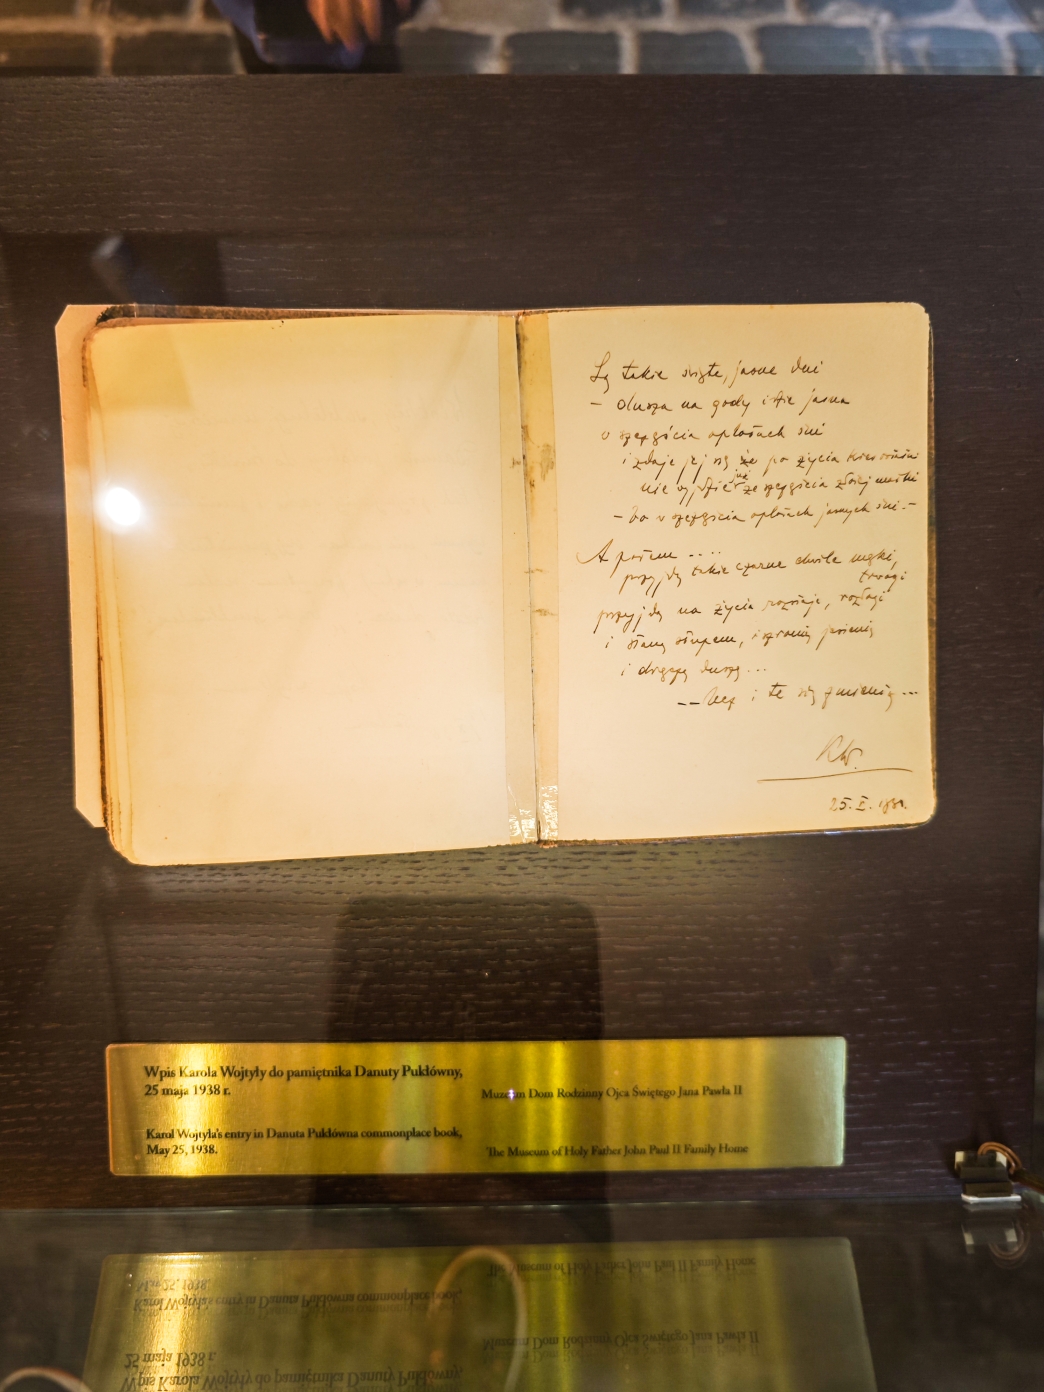 Są takie święte, jasne dni
– dusza na gody idzie jasna
w szczęścia opłotach śni
i zdaje jej się że po życia
nie wyjdzie już ze szczęścia złotej
– bo w szczęścia opłotach jasnych śni. –
A potem ....
przyjdą takie czarne chwile męki,
trwogi
przyjdą na życia rozstaje, rozłogi
i staną słupem, i
i drgają duszą...
–– Lecz i te się zmienią...
KW.
25. V. 1938.
Wpis Karola Wojtyły do pamiętnika Danuty Pukłówny,
25 maja 1938 r.
Muzeum Dom Rodzinny Ojca Świętego Jana Pawła II
Karol Wojtyła's entry in Danuta Pukłówna commonplace book,
May 25, 1938.
The Museum of Holy Father John Paul II Family Home